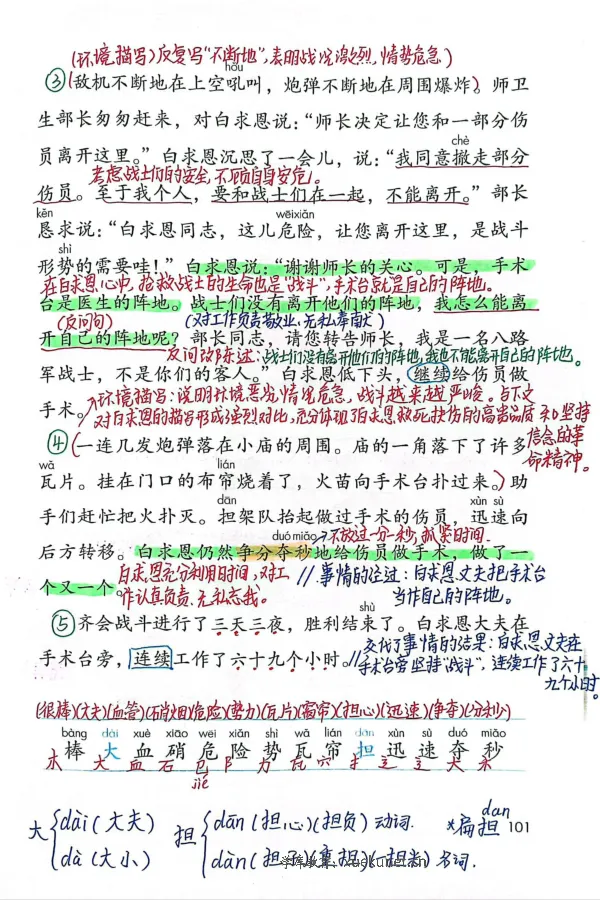 (环境描写)反复写"不断地",表明战况激烈,情势危急)
hǒu
③(敌机不断地在上空吼叫，炮弹不断地在周围爆炸)。师卫
生部长匆匆赶来，对白求恩说：“师长决定让您和一部分伤
chè
员离开这里。”白求恩沉思了一会儿，说：“我同意撤走部分
考虑战士们的安全,不顾自身安危。
伤员。至于我个人，要和战士们在一起，不能离开。”部长
kěn wēixiǎn
恳求说：“白求恩同志，这儿危险，让您离开这里，是战斗
shì
形势的需要哇！”白求恩说：“谢谢师长的关心。可是，手术
在白求恩心中,抢救战士的生命也是"战斗",手术台就是自己的阵地。
台是医生的阵地。战士们没有离开他们的阵地，我怎么能离
(反问句) (对工作负责敬业、无私奉献)
开自己的阵地呢？部长同志，请您转告师长，我是一名八路
反问改陈述:战士们没有离开他们的阵地,我也不能离开自己的阵地。
军战士，不是你们的客人。”白求恩低下头，继续给伤员做
手术。
环境描写:说明环境恶劣,情况危急,战斗越来越严峻。与下文
对白求恩的描写形成强烈对比,充分体现了白求恩救死扶伤的高贵品质和坚持
信念的革
命精神。
④(一连几发炮弹落在小庙的周围。庙的一角落下了许多
wǎ lián
瓦片。挂在门口的布帘烧着了，火苗向手术台扑过来。)助
dān xùn sù
手们赶忙把火扑灭。担架队抬起做过手术的伤员，迅速向
duó miǎo 不放过一分一秒,抓紧时间.
后方转移。白求恩仍然争分夺秒地给伤员做手术，做了一
个又一个。
白求恩充分利用时间,对工
作认真负责、无私忘我。
//事情的经过:白求恩大夫把手术台
当作自己的阵地。
shù
⑤齐会战斗进行了三天三夜，胜利结束了。白求恩大夫在
手术台旁，连续工作了六十九个小时。//
交代了事情的结果:白求恩大夫在
手术台旁坚持"战斗",连续工作了六十
九个小时。
(很棒)(大夫)(血管)(硝烟)(危险)(势力)(瓦片)(窗帘)(担心)(迅速)(争夺)(分秒)
bàng dài xuè xiāo wēi xiǎn shì wǎ lián dān xùn sù duó miǎo
棒 大 血 硝 危 险 势 瓦 帘 担 迅 速 夺 秒
木 大 血 石 㔾 阝 力 瓦 穴 扌 辶 辶 大 禾
jié
大 dài(大夫)
dà(大小)
担 dān(担心)(担负)动词.
dàn(担子)(重担)(担当)名词.
*扁担 dan
101